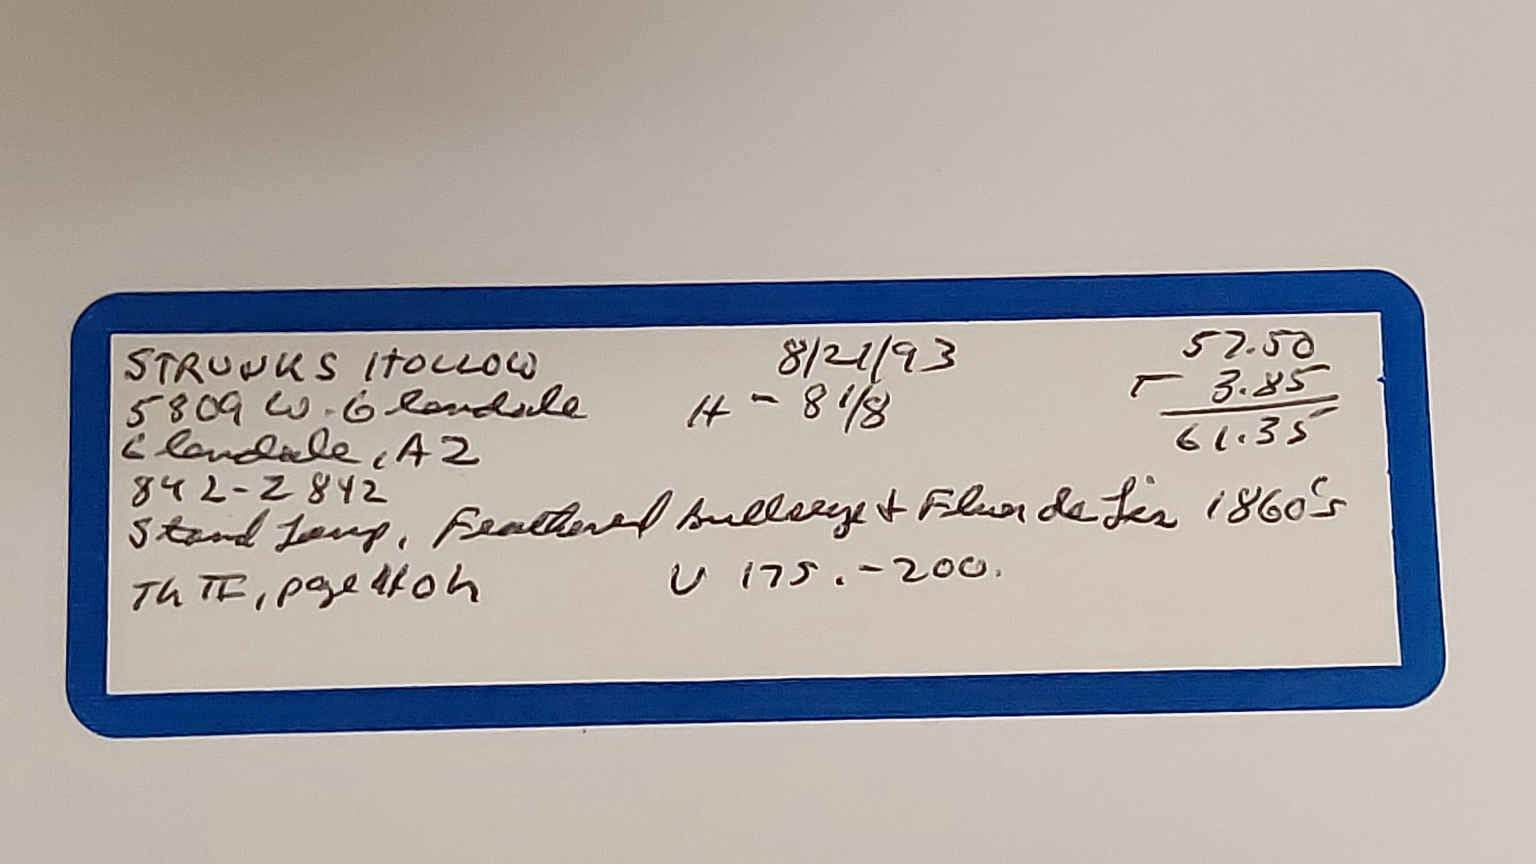 STRUNKS HOLLOW 8/21/93 57.50
5809 W. Glendale H - 8 1/8 T 3.85
Glendale, AZ 61.35
842-2842
Stand Lamp, Feathered bullseye + Fleur de Lis 1860's
Th II, page 40 h V 175.-200.